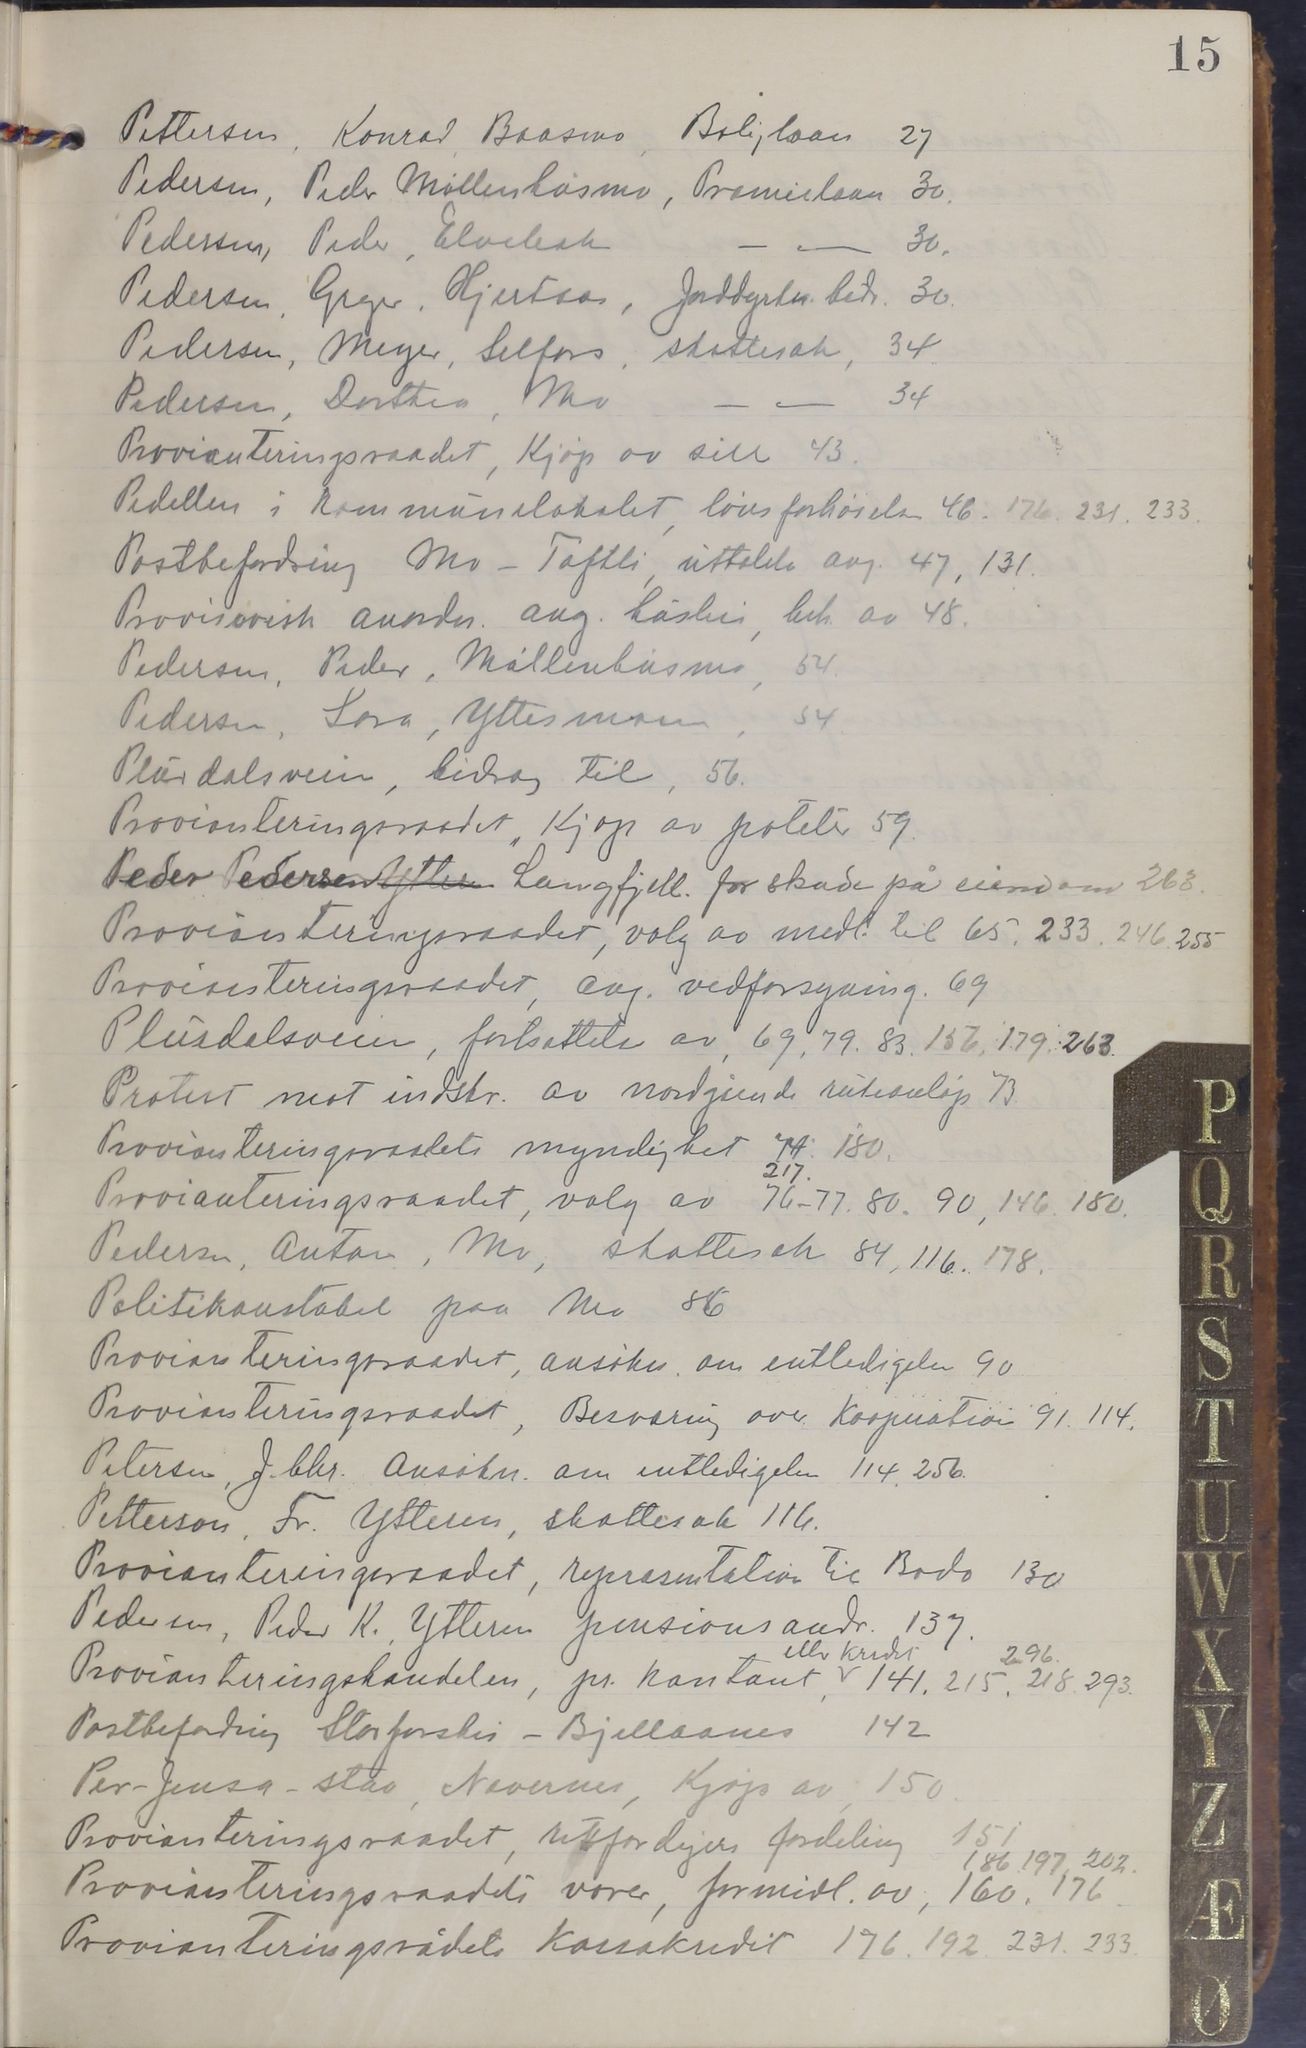 15
Pettersen, Konrad, Baasmo, Boliglaan 27
Pedersen, Peder Møllenhusmo, Præmielaan 30.
Pedersen, Peder, Elvebak — — 30.
Pedersen, Greger, Hjertaas, Jorddyrkn. bidr. 30.
Pedersen, Meyer, Selfors, skattesak, 34
Pedersen, Dorthea, Mo — — 34
Provianteringsraadet, Kjøp av sill 43.
Pedellen i kommunelokalet, lönsforhöielse 46. 176. 231. 233.
Postbefordring Mo - Toftli, uttalelse ang. 47, 131.
Provisorisk anordn. ang. husleie, beh. av 48.
Pedersen, Peder, Møllenhusmo, 54.
Pedersen, Lova, Ytteren, 54
Plurdalsveien, bidrag til, 56.
Provianteringsraadet, Kjøp av poteter 59.
Peder Pedersen Ytteren Langfjell. for skade på eiendom 263.
Provianteringsraadet, valg av medl. til 65. 233. 246. 255
Provianteringsraadet, ang. vedforsyning. 69
Plurdalsveien, fortsættelse av, 69, 79. 83. 156. 179. 263.
Protest mot indskr. av nordgående ruteanløp 73.
Provianteringsraadets myndighet 74. 180.
217.
Provianteringsraadet, valg av 76-77. 80. 90, 146. 180.
Pedersen, Anton, Mo, skattesak 84, 116. 178.
Politikonstabel paa Mo 86
Provianteringsraadet, ansökn. om entledigelse 90
Provianteringsraadet, Besværing over Kooperation 91. 114.
Petersen, J. Chr. Ansökn. om entledigelse 114. 256.
Petterson, Fr. Ytteren, skattesak 116.
Provianteringsraadet, repræsentation til Bodø 130
Pedersen, Peder K. Ytteren pensionsandr. 137.
eller kredit 296.
Provianteringshandelen, pr. kontant, v 141. 215. 218. 293.
Postbefordring Storforshei - Bjellaanes 142
Per-Jensa-stao, Nævernes, Kjøp av, 150.
Provianteringsraadet, rettferdigere fordeling 151
186. 197. 202.
Provianteringsraadets varer, formidl. av, 160. 176.
Provianteringsrådets Kassakredit 176. 192. 231. 233.
P
Q
R
S
T
U
W
X
Y
Z
Æ
Ø